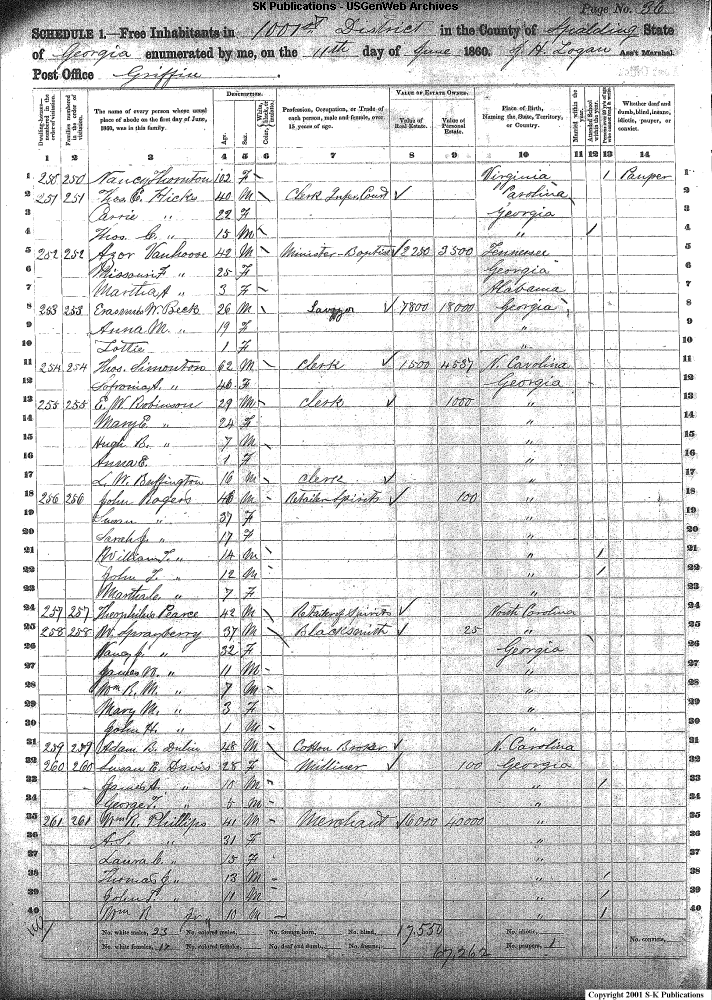 SK Publications - USGenWeb Archives
Page No. 36
SCHEDULE 1.—Free Inhabitants in 1001st District in the County of Spalding State
of Georgia enumerated by me, on the 11th day of June 1860. J. H. Logan Ass't Marshal.
Post Office Griffin.
Dwelling-houses—numbered in the order of visitation.
Families numbered in the order of visitation.
The name of every person whose usual place of abode on the first day of June, 1860, was in this family.
DESCRIPTION.
Age.
Sex.
Profession, Occupation, or Trade of each person, male and female, over 15 years of age.
VALUE OF ESTATE OWNED.
Value of Real Estate.
Value of Personal Estate.
Place of Birth, Naming the State, Territory, or Country.
Married within the year.
Attended School within the year.
Whether deaf and dumb, blind, insane, idiotic, pauper, or convict.
1 2 3 4 5 6 7 8 9 10 11 12 13 14
1 250 250 Nancy Thornton 102 F Virginia / Pauper 1
2 251 251 Thos. E. Hicks 40 M Clerk Court Carolina 2
3 Carrie " 22 F Georgia 3
4 Thos. C. " 15 M " 4
5 252 252 Azor Vanhoose 42 M Minister-Baptist 2250 3500 Tennessee 5
6 Missouri F. " 25 F Georgia 6
7 Martha A " 3 F Alabama 7
8 253 253 Erasmus W. Beck 26 M Lawyer 7800 18000 Georgia 8
9 Anna M. " 19 F " 9
10 Lottie 1 F " 10
11 254 254 Thos. Simonton 62 M Clerk 1500 4587 N. Carolina 11
12 Sofronia A. " 46 F Georgia 12
13 255 255 E. W. Robinson 29 M Clerk 1000 " 13
14 Mary E. " 24 F " 14
15 Hugh B. " 7 M " 15
16 Anna E. 1 F " 16
17 L. W. Buffington 16 M Clerk " 17
18 256 256 John Rogers 46 M Retailer Spirits 100 " 18
19 Susan " 37 F " 19
20 Sarah J. " 17 F " 20
21 William T. " 14 M " / 21
22 John T. " 12 M " / 22
23 Martha " 7 F " 23
24 257 257 Theophilus Pearce 42 M Retailer of Spirits North Carolina 24
25 258 258 W. Sprayberry 37 M Blacksmith 25 " 25
26 Nancy J. " 32 F Georgia 26
27 James " 11 M " 27
28 Wm R. M. " 7 M " 28
29 Mary M. " 3 F " 29
30 John H. " 1 M " 30
31 259 259 Adam B. Dulin 48 M Cotton Broker N. Carolina 31
32 260 260 Susan E. Davis 28 F Milliner 100 Georgia 32
33 James A. " 10 M " / 33
34 George T. " 5 M " 34
35 261 261 Wm R. Phillips 41 M Merchant 6000 40000 " 35
36 A. S. " 31 F " 36
37 Laura C. " 15 F " 37
38 Thomas J. " 13 M " / 38
39 John " 11 M " / 39
40 Wm R Jr " 10 M " / 40
No. white males, 23 No. colored males, No. foreign born, No. blind, 17,550 No. idiotic, No. convicts,
No. white females, 17 No. colored females, No. deaf and dumb, No. insane, 67,262 No. paupers, 1
Copyright 2001 S-K Publications